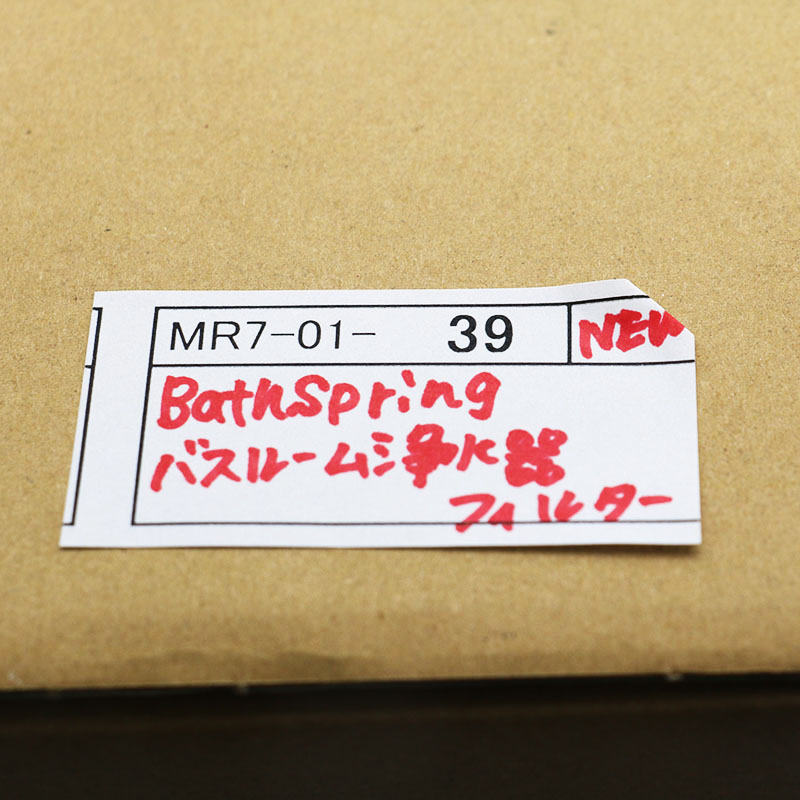 MR7-01- 39 NEW
BathSpring
バスルーム浄水器
フィルター